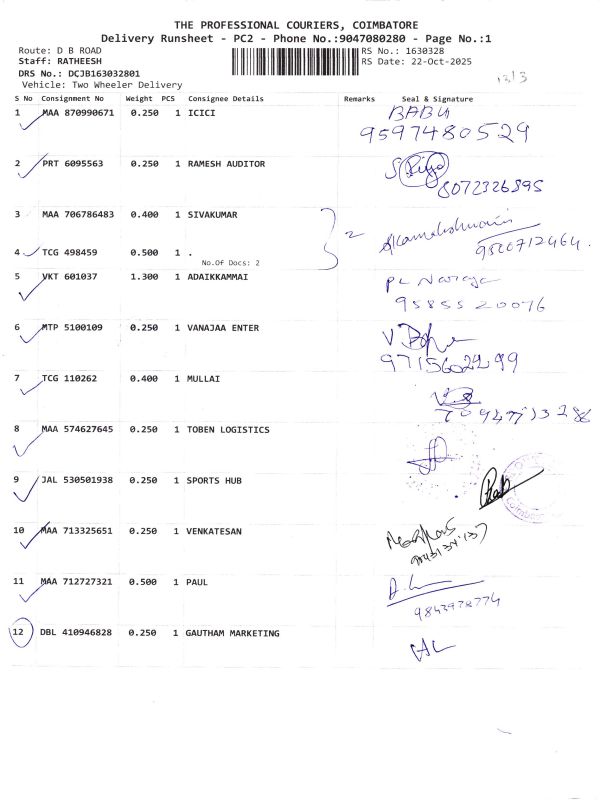 THE PROFESSIONAL COURIERS, COIMBATORE
Delivery Runsheet - PC2 - Phone No.:9047080280 - Page No.:1
Route: D B ROAD RS No.: 1630328
Staff: RATHEESH RS Date: 22-Oct-2025
DRS No.: DCJB163032801
Vehicle: Two Wheeler Delivery
S No Consignment No Weight PCS Consignee Details Remarks Seal & Signature
1 MAA 870990671 0.250 1 ICICI BABU
9597480529
2 PRT 6095563 0.250 1 RAMESH AUDITOR
8072326895
3 MAA 706786483 0.400 1 SIVAKUMAR 2
4 TCG 498459 0.500 1 .
No.Of Docs: 2
5 VKT 601037 1.300 1 ADAIKKAMMAI
9585520076
6 MTP 5100109 0.250 1 VANAJAA ENTER
7 TCG 110262 0.400 1 MULLAI
8 MAA 574627645 0.250 1 TOBEN LOGISTICS
9 JAL 530501938 0.250 1 SPORTS HUB
10 MAA 713325651 0.250 1 VENKATESAN
11 MAA 712727321 0.500 1 PAUL
12 DBL 410946828 0.250 1 GAUTHAM MARKETING